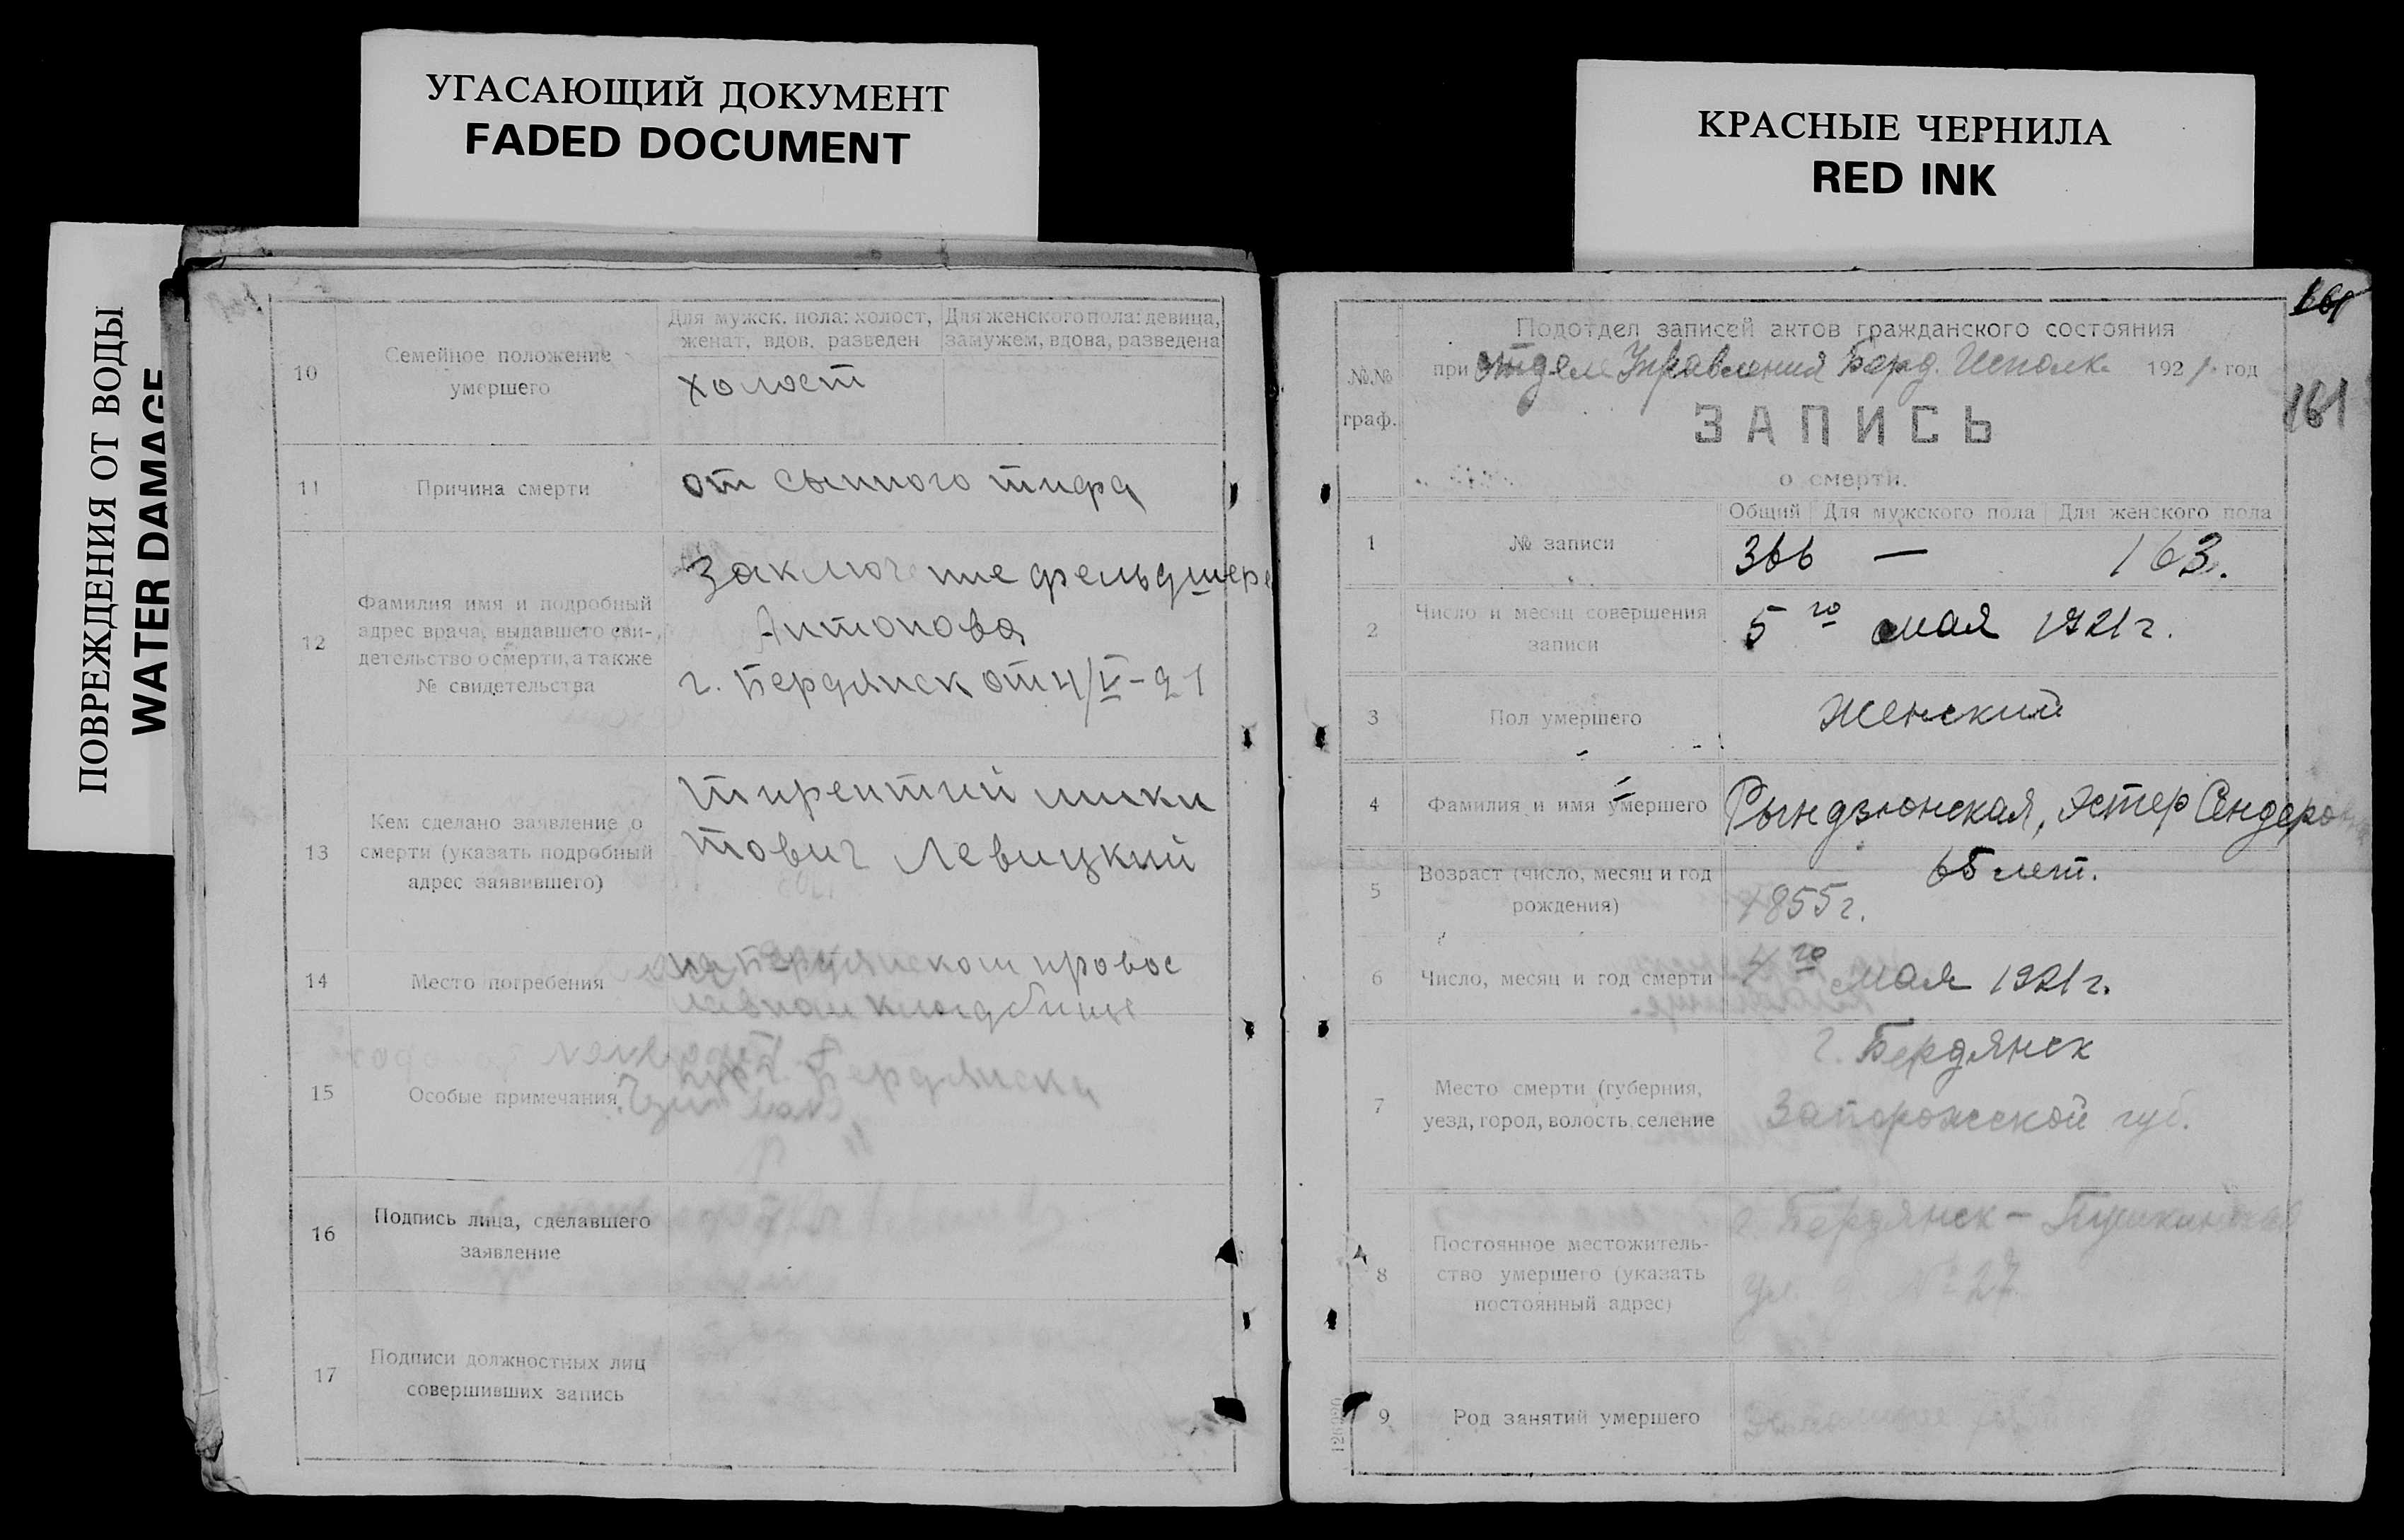 УГАСАЮЩИЙ ДОКУМЕНТ
FADED DOCUMENT
КРАСНЫЕ ЧЕРНИЛА
RED INK
ПОВРЕЖДЕНИЯ ОТ ВОДЫ
WATER DAMAGE
Для мужск. пола: холост, женат, вдов, разведен
Для женского пола: девица, замужем, вдова, разведена
10
Семейное положение
умершего
холост
11
Причина смерти
от сыпного тифа
12
Фамилия имя и подробный
адрес врача, выдавшего сви-
детельство о смерти, а также
№ свидетельства
Заключение фельдшера
Антонова
г. Бердянск от 4/V-21
13
Кем сделано заявление о
смерти (указать подробный
адрес заявившего)
Тирентий Ники
тович Левицкий
14
Место погребения
на Бердянском провос
лавном кладбище
15
Особые примечания
г. Бердянска
16
Подпись лица, сделавшего
заявление
17
Подписи должностных лиц
совершивших запись
161
161
№.№
граф.
Подотдел записей актов гражданского состояния
при отделе Управления Берд. Исполк. 1921 год
ЗАПИСЬ
о смерти.
Общий Для мужского пола Для женского пола
1
№ записи
366 — 163.
2
Число и месяц совершения
записи
5го мая 1921 г.
3
Пол умершего
Женский
4
Фамилия и имя умершего
Рындзюнская, Эстер Сендеровна
5
Возраст (число, месяц и год
рождения)
65 лет.
1855 г.
6
Число, месяц и год смерти
4го мая 1921 г.
7
Место смерти (губерния,
уезд, город, волость, селение
г. Бердянск
Запорожской губ.
8
Постоянное местожитель-
ство умершего (указать
постоянный адрес)
г. Бердянск – Пушкинская
ул. д. № 27
9
Род занятий умершего